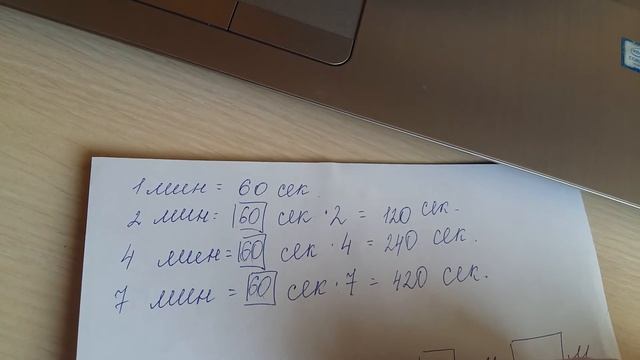 1 мин = 60 сек.
2 мин = 60 сек · 2 = 120 сек.
4 мин = 60 сек · 4 = 240 сек.
7 мин = 60 сек · 7 = 420 сек.